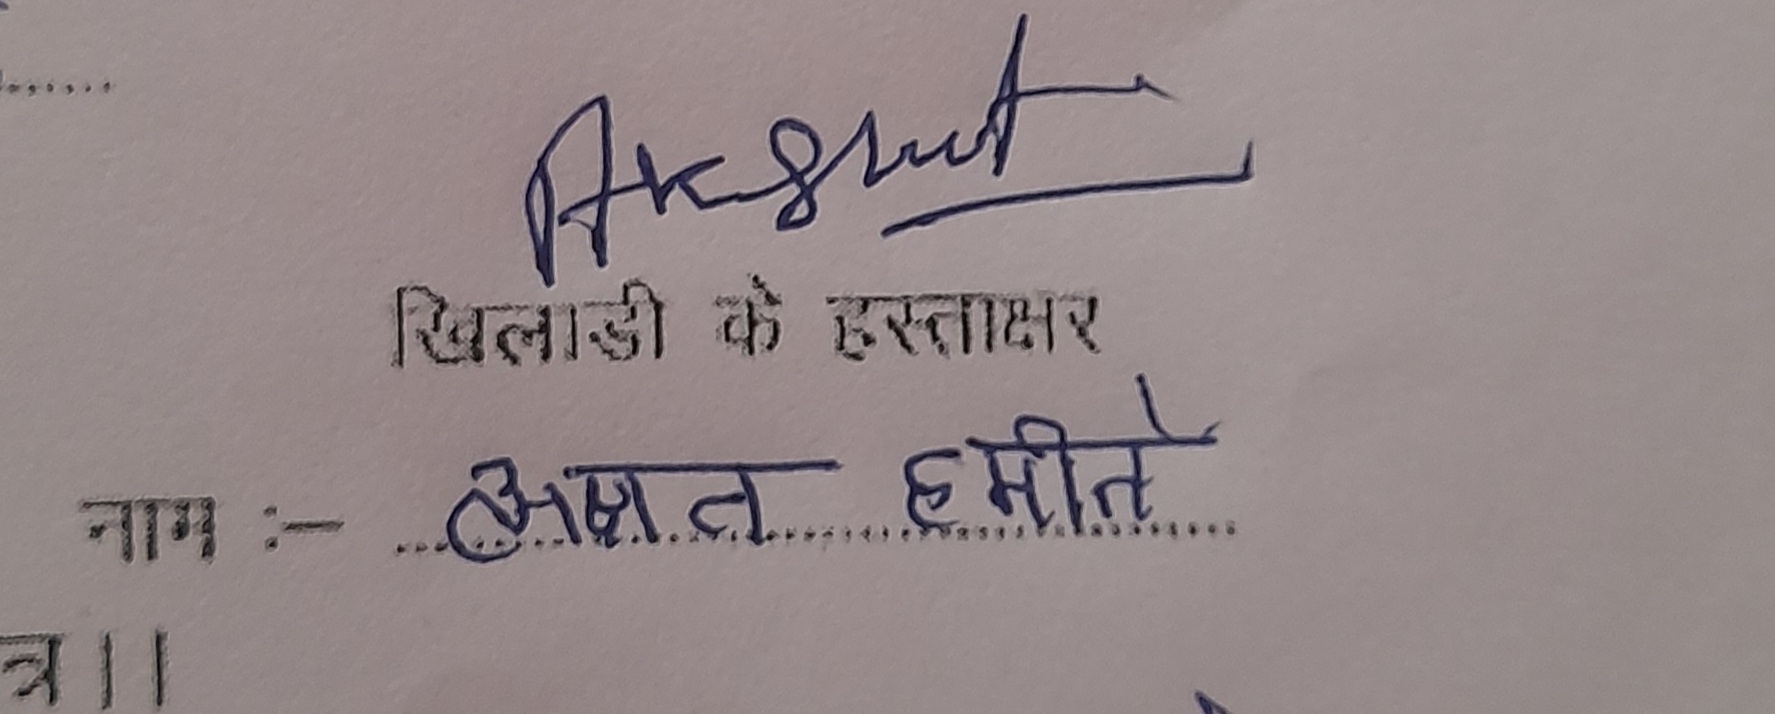 Akshat
खिलाडी के हस्ताक्षर
नाम :- अक्षत हमीते
त्र ।।